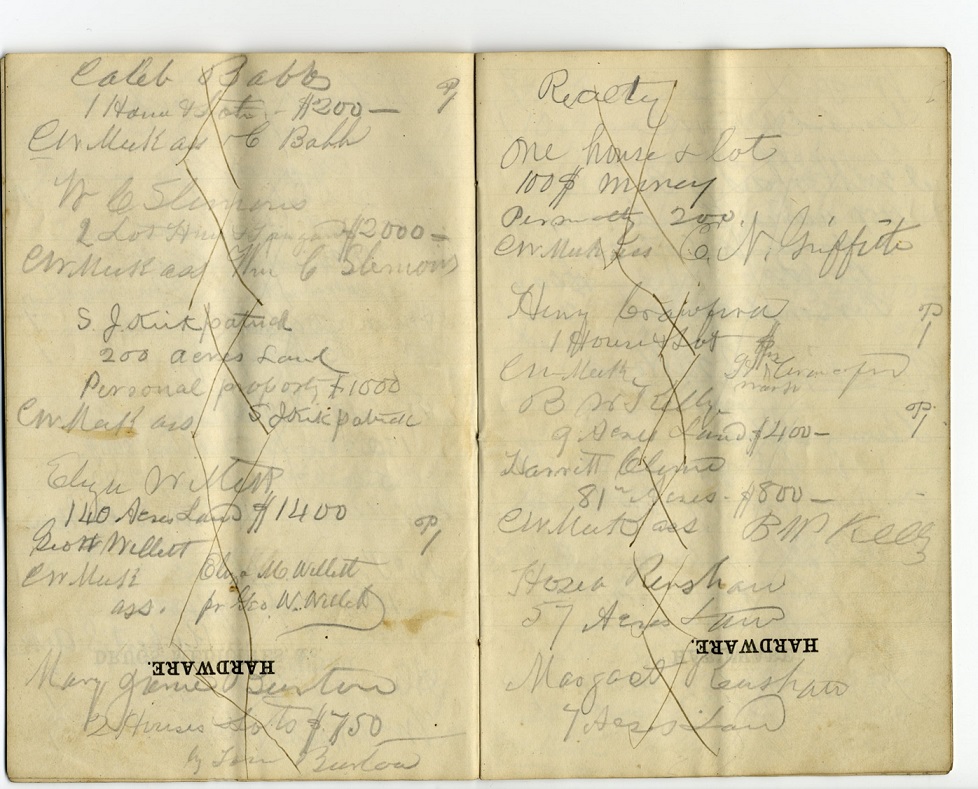 Caleb Babb
1 House & Lot - $200 -
CW Meek ass C Babb
W C Slemons
2 Lot $2000 -
CW Meek ass Wm C Slemons
S. J. Kirkpatrick
200 acres Land
Personal property $1000
CW Meek ass S J Kirkpatrick
Eliza Willett
140 Acres Land $1400
Geo W Willett
CW Meek Eliza M Willett
ass. pr Geo. W. Willett
HARDWARE.
Mary Jane Burton
2 Houses Lots $750
by Burton
Realty
One house & lot
100$ money
200.
CW Meek ass C. N. Griffith
Henry Crawford
1 House & Lot
CW Meek
B W Kelly
9 Acres Land $400 -
Harriett
81 Acres - $800 -
CW Meek ass B W Kelly
Hosea Renshaw
57 Acres Law
HARDWARE.
Margaret Renshaw
7 Acres Law